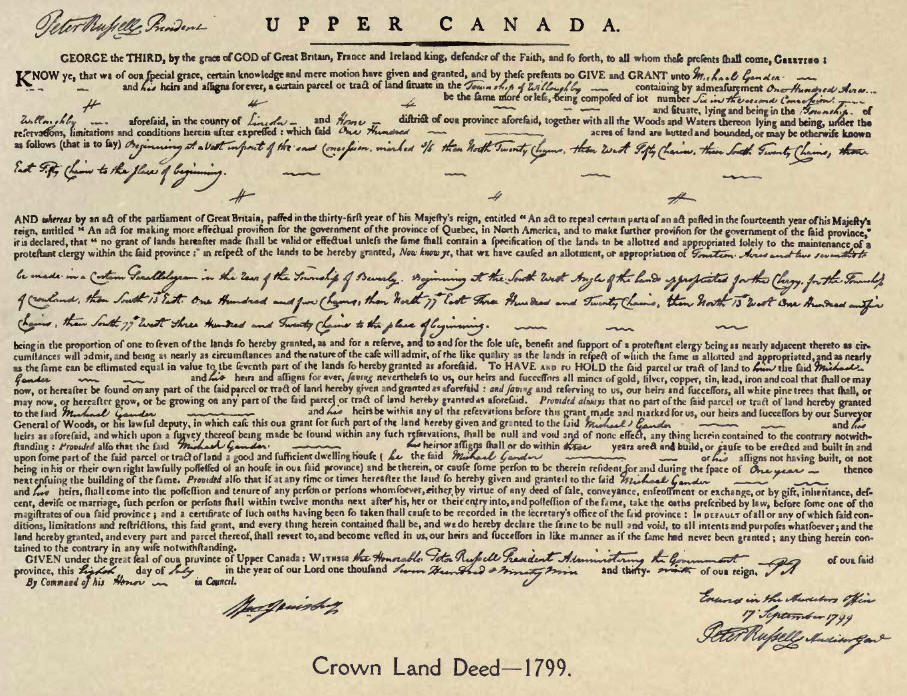 Peter Russell President
UPPER CANADA.
GEORGE the THIRD, by the grace of GOD of Great Britain, France and Ireland king, defender of the Faith, and so forth, to all whom theſe preſents ſhall come, GREETING :
KNOW ye, that we of our ſpecial grace, certain knowledge and mere motion have given and granted, and by theſe preſents do GIVE and GRANT unto Michael Gander
and his heirs and aſſigns forever, a certain parcel or tract of land ſituate in the Township of Willoughby containing by admeaſurement One Hundred Acres
be the ſame more or leſs, being compoſed of lot number Six in the second Concession
and ſituate, lying and being in the Township of
Willoughby aforeſaid, in the county of Lincoln and Home diſtrict of our province aforeſaid, together with all the Woods and Waters thereon lying and being, under the
reſervations, limitations and conditions herein after expreſſed : which ſaid One Hundred acres of land are butted and bounded, or may be otherwiſe known
as follows (that is to ſay) Beginning at a Post in front of the said Concession, marked 5/6 then North Twenty Chains, then West Fifty Chains, then South Twenty Chains, then
East Fifty Chains to the place of beginning.
AND whereas by an act of the parliament of Great Britain, paſſed in the thirty-firſt year of his Majeſty's reign, entitled "An act to repeal certain parts of an act paſſed in the fourteenth year of his Majeſty's
reign, entitled "An act for making more effectual proviſion for the government of the province of Quebec, in North America, and to make further proviſion for the government of the ſaid province,"
it is declared, that "no grant of lands hereafter made ſhall be valid or effectual unleſs the ſame ſhall contain a ſpecification of the lands to be allotted and appropriated ſolely to the maintenance of a
proteſtant clergy within the ſaid province :" in reſpect of the lands to be hereby granted, Now know ye, that we have cauſed an allotment, or appropriation of Fourteen Acres and two sevenths to
be made in a Certain Parallelogram in the Rear of the Township of Beverly. Beginning at the South West Angle of the Lands appropriated for the Clergy, for the Township
of Crowland, then South 13° East One Hundred and five Chains, then North 77° East Three Hundred and Twenty Chains, then North 13° West One Hundred and five
Chains, then South 77° West Three Hundred and Twenty Chains to the place of beginning.
being in the proportion of one to ſeven of the lands ſo hereby granted, as and for a reſerve, and to and for the ſole uſe, benefit and ſupport of a proteſtant clergy being as nearly adjacent thereto as cir-
cumſtances will admit, and being as nearly as circumſtances and the nature of the caſe will admit, of the like quality as the lands in reſpect of which the ſame is allotted and appropriated, and as nearly
as the ſame can be eſtimated equal in value to the ſeventh part of the lands ſo hereby granted as aforeſaid. TO HAVE AND TO HOLD the ſaid parcel or tract of land to him the ſaid Michael
Gander and his heirs and aſſigns for ever, ſaving nevertheleſs to us, our heirs and ſucceſſors all mines of gold, ſilver, copper, tin, lead, iron and coal that ſhall or may
now, or hereafter be found on any part of the ſaid parcel or tract of land hereby given and granted as aforeſaid : and ſaving and reſerving to us, our heirs and ſucceſſors, all white pine trees that ſhall, or
may now, or hereafter grow, or be growing on any part of the ſaid parcel or tract of land hereby granted as aforeſaid. Provided always that no part of the ſaid parcel or tract of land hereby granted
to the ſaid Michael Gander and his heirs be within any of the reſervations before this grant made and marked for us, our heirs and ſucceſſors by our Surveyor
General of Woods, or his lawful deputy, in which caſe this our grant for ſuch part of the land hereby given and granted to the ſaid Michael Gander and his
heirs as aforeſaid, and which upon a ſurvey thereof being made be found within any ſuch reſervations, ſhall be null and void and of none effect, any thing herein contained to the contrary notwith-
ſtanding : Provided alſo that the ſaid Michael Gander his heirs or aſſigns ſhall or do within three years erect and build, or cauſe to be erected and built in and
upon ſome part of the ſaid parcel or tract of land a good and ſufficient dwelling houſe ( he the ſaid Michael Gander or his aſſigns not having built, or not
being in his or their own right lawfully poſſeſſed of an houſe in our ſaid province) and be therein, or cauſe ſome perſon to be therein reſident for and during the ſpace of One year thence
next enſuing the building of the ſame. Provided alſo that if at any time or times hereafter the land ſo hereby given and granted to the ſaid Michael Gander
and his heirs, ſhall come into the poſſeſſion and tenure of any perſon or perſons whomſoever, either by virtue of any deed of ſale, conveyance, enfeoffment or exchange, or by gift, inheritance, deſ-
cent, deviſe or marriage, ſuch perſon or perſons ſhall within twelve months next after his, her or their entry into, and poſſeſſion of the ſame, take the oaths preſcribed by law, before ſome one of the
magiſtrates of our ſaid province ; and a certificate of ſuch oaths having been ſo taken ſhall cauſe to be recorded in the ſecretary's office of the ſaid province : In DEFAULT of all or any of which ſaid con-
ditions, limitations and reſtrictions, this ſaid grant, and every thing herein contained ſhall be, and we do hereby declare the ſame to be null and void, to all intents and purpoſes whatſoever ; and the
land hereby granted, and every part and parcel thereof, ſhall revert to, and become veſted in us, our heirs and ſucceſſors in like manner as if the ſame had never been granted ; any thing herein con-
tained to the contrary in any wiſe notwithſtanding.
GIVEN under the great ſeal of our province of Upper Canada : WITNESS the Honorable Peter Russell President Administering the Government of our ſaid
province, this Eighth day of July in the year of our Lord one thouſand Seven Hundred & Ninety Nine and thirty- ninth of our reign. PR
By Command of his Honor in Council.
Entered in the Auditors Office
17 September 1799
Peter Russell Auditor Genl
Crown Land Deed—1799.